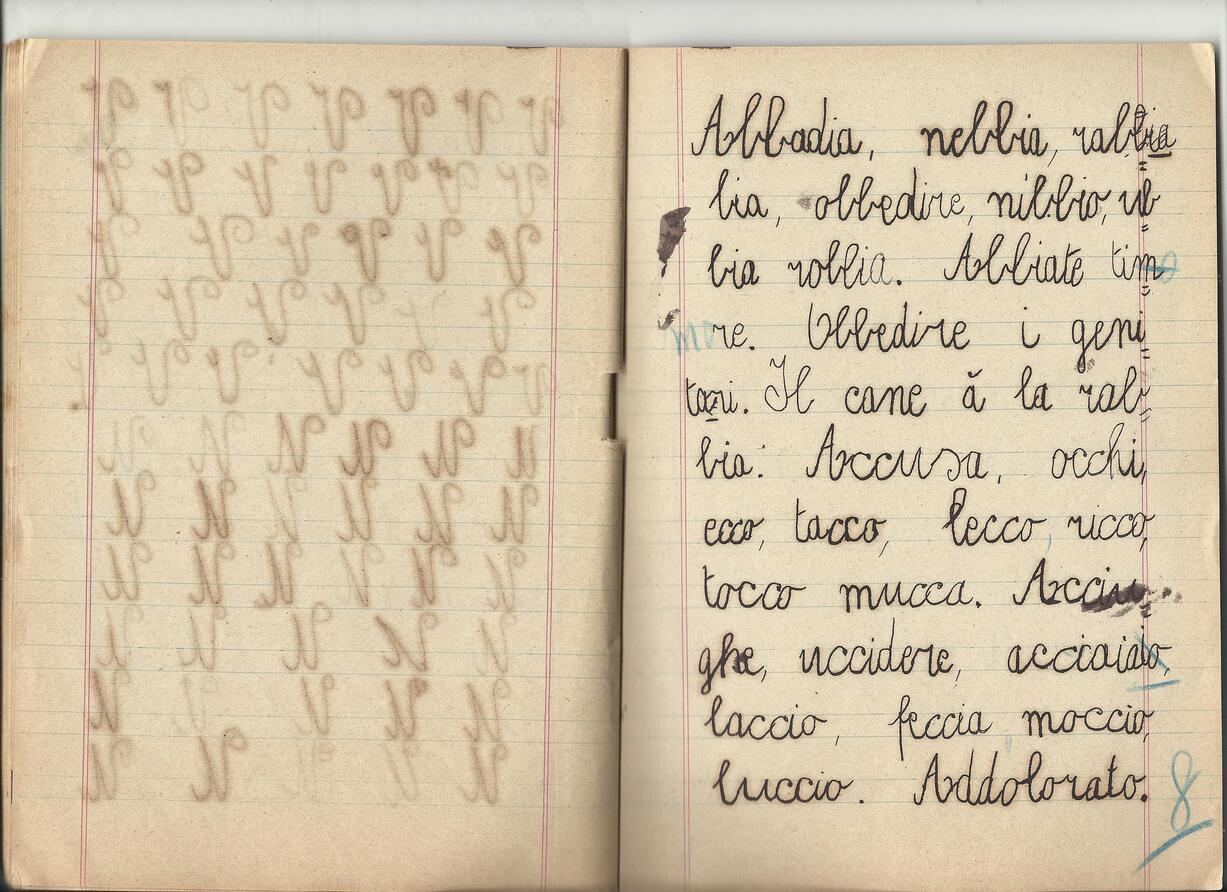 Abbadia, nebbia, rabbia
bia, obbedire, nibbio, ub=
bia robbia. Abbiate tim=
more. Obbedire i geni=
tori. Il cane ă la rab=
bia. Accusa, occhi,
ecco, tacco, lecco, ricco,
tocco mucca. Acciu=
ghe, uccidere,
laccio, feccia, moccio,
luccio. Addolorato.
8